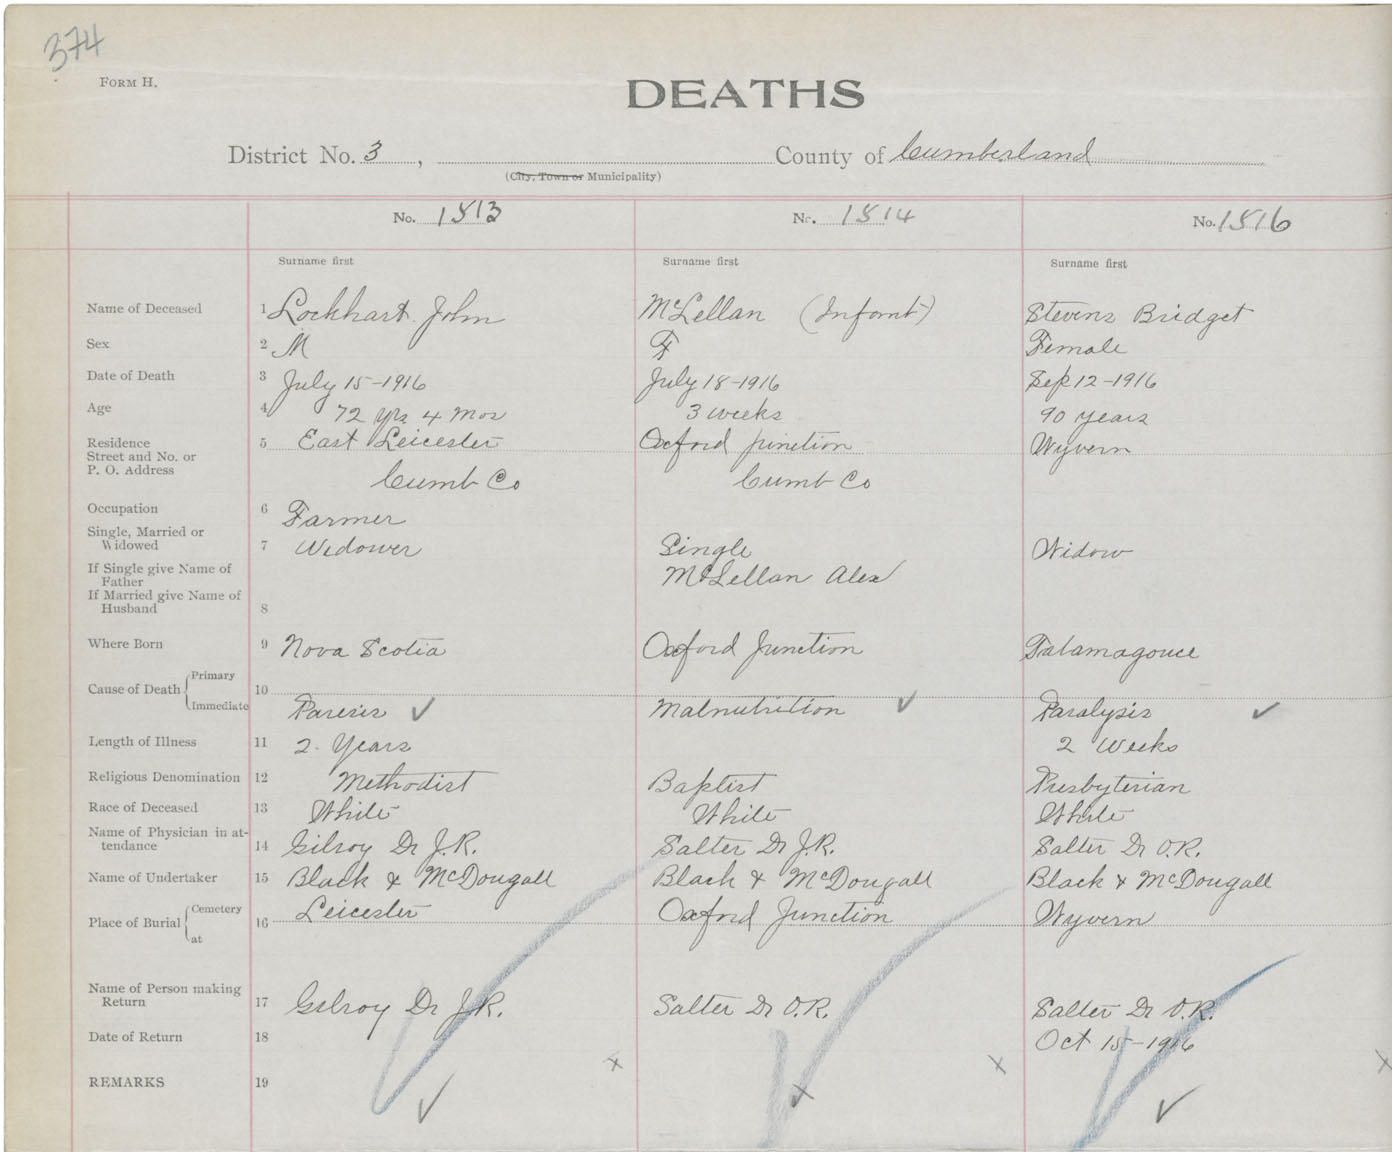 374
FORM H.
DEATHS
District No. 3, County of Cumberland
(City, Town or Municipality)
No. 1513 No. 1514 No. 1516
Surname first Surname first Surname first
Name of Deceased 1 Lockhart John McLellan (Infant) Stevens Bridget
Sex 2 M F Female
Date of Death 3 July 15-1916 July 18-1916 Sep 12-1916
Age 4 72 yrs 4 mos 3 weeks 90 years
Residence 5 East Leicester Oxford junction Wyvern
Street and No. or
P. O. Address Cumb Co Cumb Co
Occupation 6 Farmer
Single, Married or
Widowed 7 Widower Single Widow
If Single give Name of
Father McLellan Alex
If Married give Name of
Husband 8
Where Born 9 Nova Scotia Oxford Junction Tatamagouce
Cause of Death Primary 10
Immediate Paresis ✓ Malnutrition ✓ Paralysis ✓
Length of Illness 11 2 Years 2 Weeks
Religious Denomination 12 Methodist Baptist Presbyterian
Race of Deceased 13 White White White
Name of Physician in at-
tendance 14 Gilroy Dr J.R. Salter Dr J.R. Salter Dr O.R.
Name of Undertaker 15 Black & McDougall Black & McDougall Black & McDougall
Place of Burial Cemetery 16 Leicester Oxford Junction Wyvern
at
Name of Person making
Return 17 Gilroy Dr J.R. Salter Dr O.R. Salter Dr O.R.
Date of Return 18 Oct 15-1916
REMARKS 19